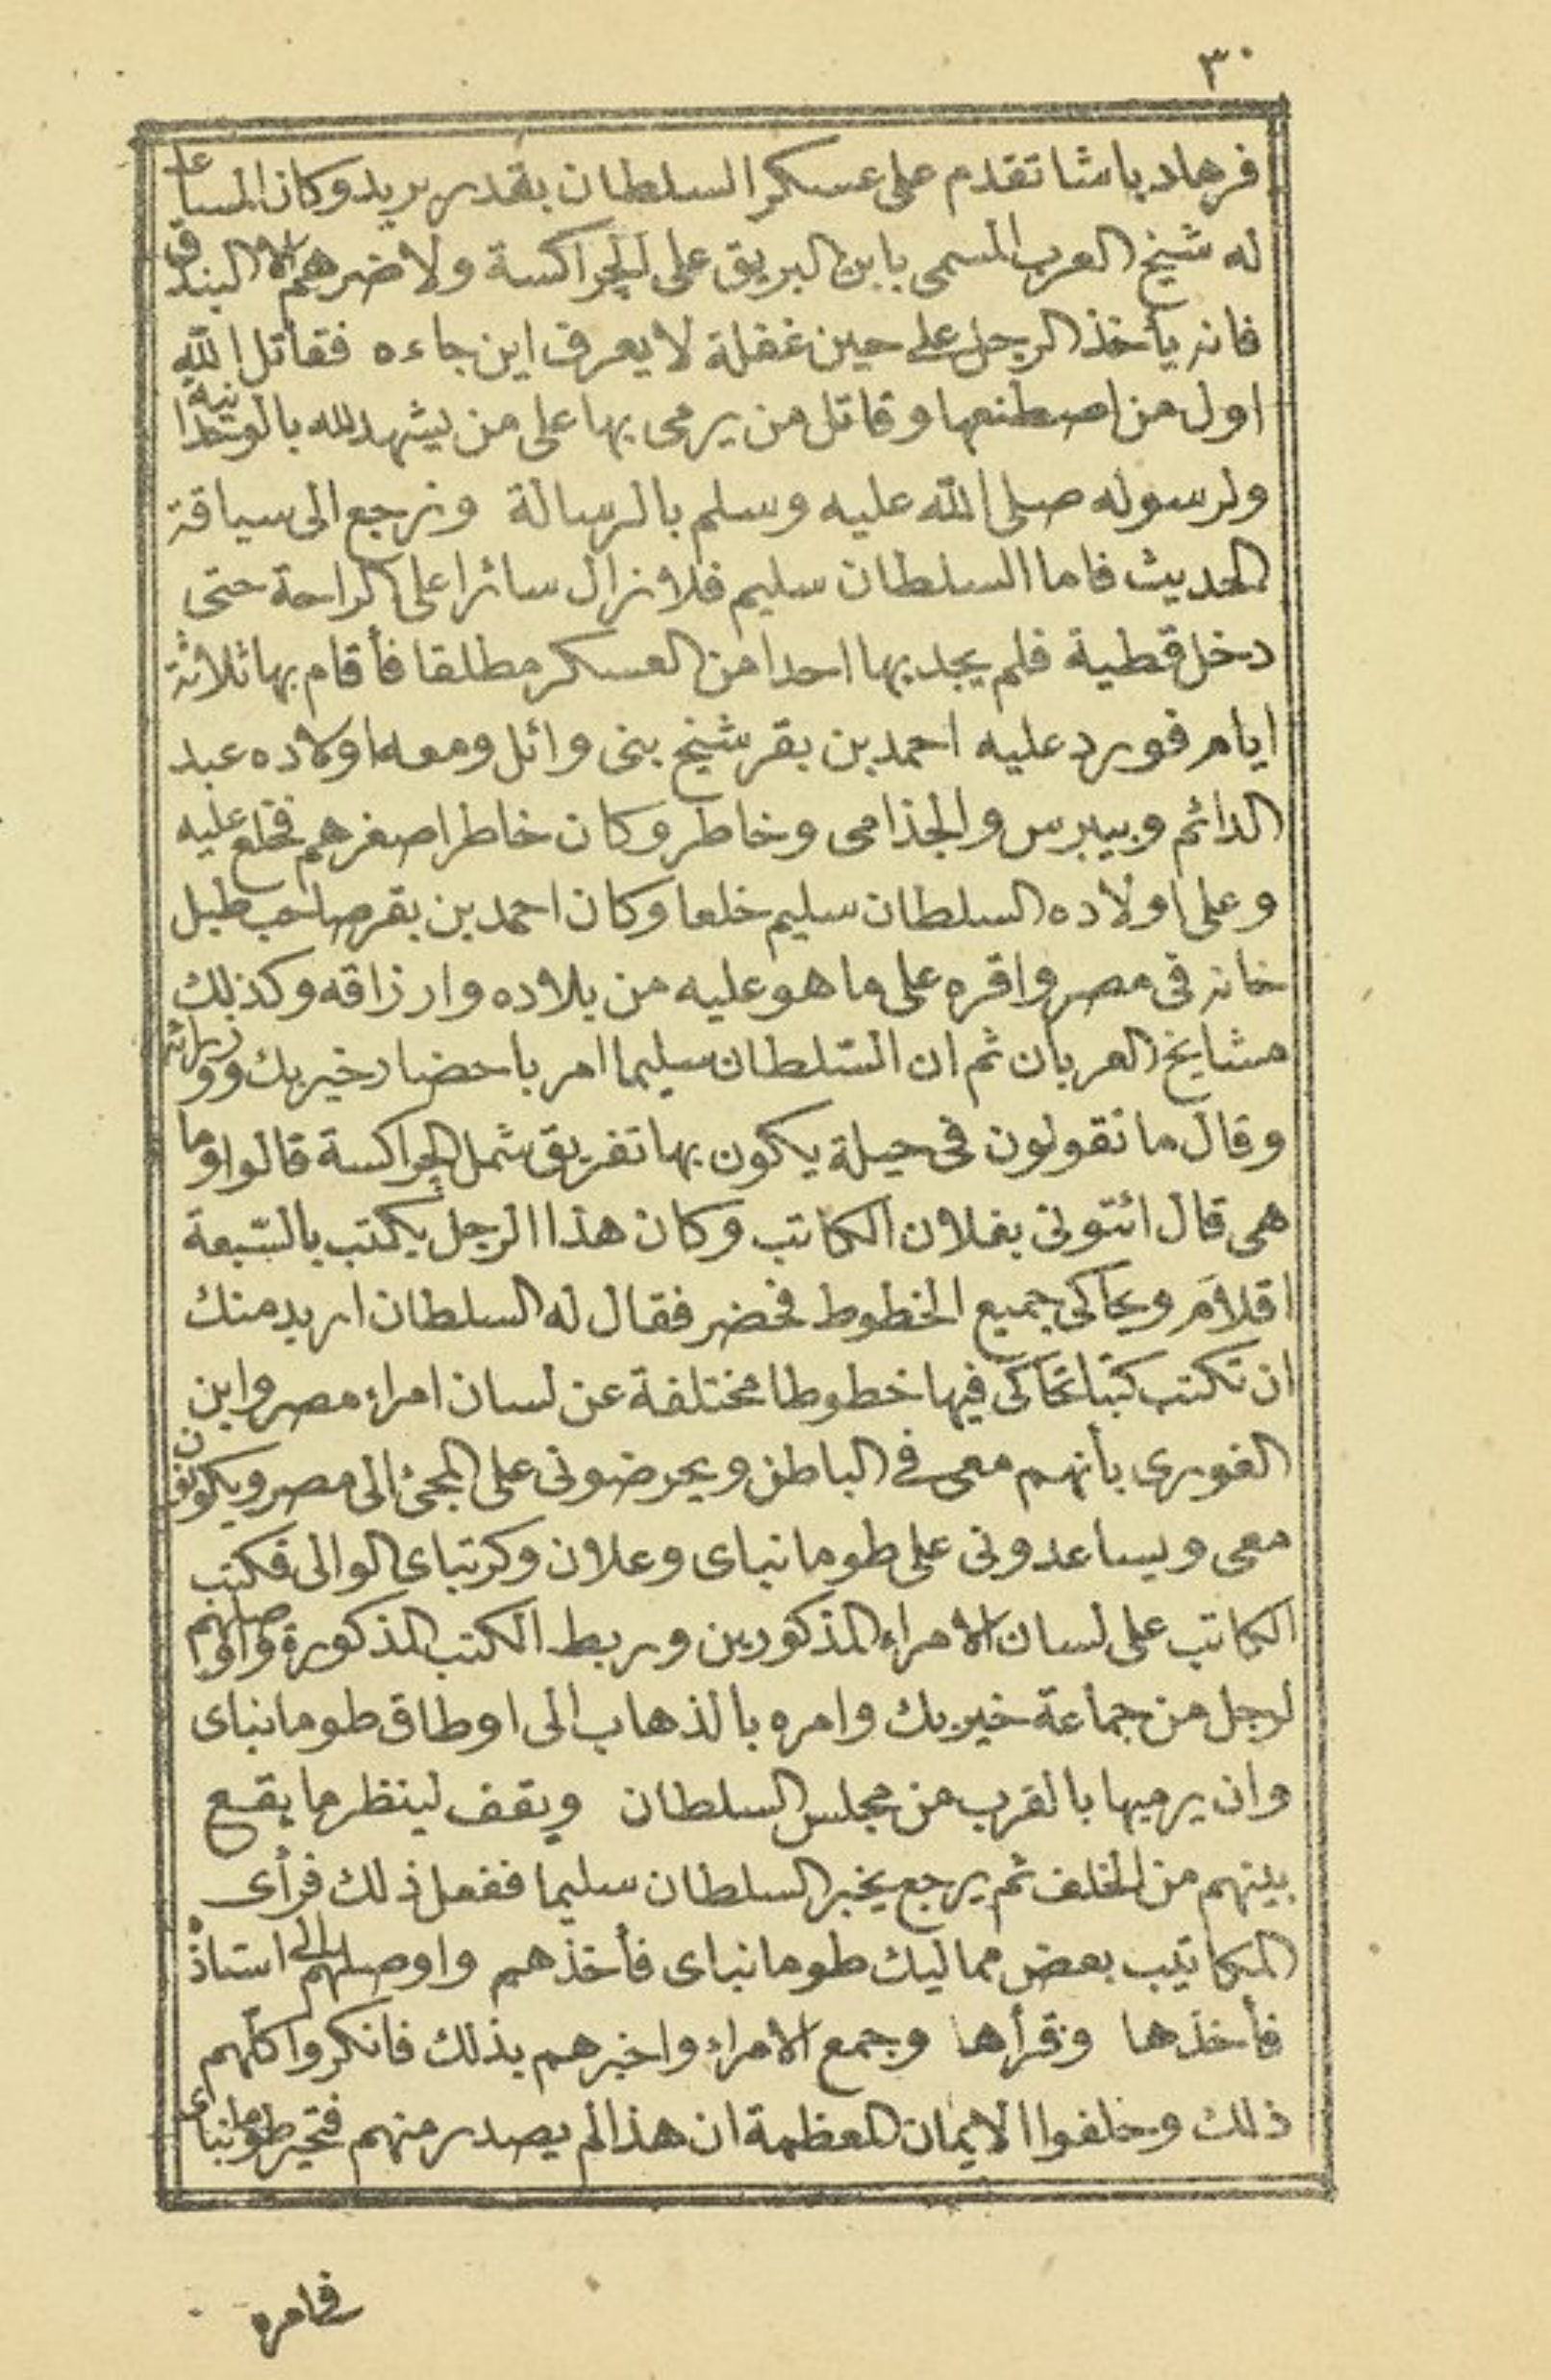 ٣٠
فرهاد باشا تقدم على عسكر السلطان بقدر بريد وكان المساعد
له شيخ العرب المسمى بابن البريق على الجراكسة ولا ضرهم الا البندق
فانه يأخذ الرجل على حين غفلة لا يعرف اين جاءه فقاتل الله
اول من اصطنعها وقاتل من يرمى بها على من يشهد لله بالوحدانية
ولرسوله صلى الله عليه وسلم بالرسالة ونرجع الى سياقة
الحديث فاما السلطان سليم فلا زال سائرا على الراحة حتى
دخل قطية فلم يجد بها احدا من العسكر مطلقا فأقام بها ثلاثة
ايام فورد عليه احمد بن بقر شيخ بنى وائل ومعه اولاده عبد
الدائم وبيبرس والجذامى وخاطر وكان خاطر اصغرهم فخلع عليه
وعلى اولاده السلطان سليم خلعا وكان احمد بن بقر صاحب طبل
خانه فى مصر واقره على ما هو عليه من بلاده وارزاقه وكذلك
مشايخ العربان ثم ان السّلطان سليما امر باحضار خيربك ووزرائه
وقال ما تقولون فى حيلة يكون بها تفريق شمل الجراكسة قالوا وما
هى قال ائتونى بفلان الكاتب وكان هذا الرجل يكتب بالسّبعة
اقلام ويحاكى جميع الخطوط فحضر فقال له السلطان اريد منك
ان تكتب كتبا تحاكى فيها خطوطا مختلفة عن لسان امراء مصر وابن
الغورى بأنهم معى فى الباطن ويحرضونى على المجئ الى مصر ويكونون
معى ويساعدونى على طومانباى وعلان وكرتباى الوالى فكتب
الكاتب على لسان الامراء المذكورين وربط الكتب المذكورة واوصلهم
لرجل من جماعة خيربك وامره بالذهاب الى اوطاق طومانباى
وان يرميها بالقرب من مجلس السلطان ويقف لينظر ما يقع
بينهم من الخلف ثم يرجع يخبر السلطان سليما ففعل ذلك فرأى
المكاتيب بعض مماليك طومانباى فأخذهم واوصلهم الى استاذه
فأخذها وقرأها وجمع الامراء واخبرهم بذلك فانكروا كلّهم
ذلك وحلفوا الايمان العظمة ان هذا لم يصدر منهم فتحير طومانباى
فى امره